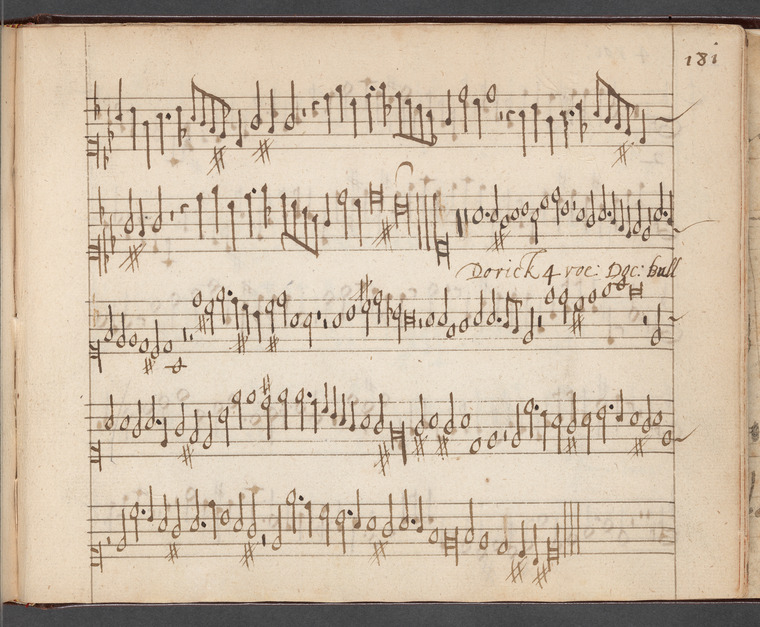 181
Dorick 4 voc: Doc: bull